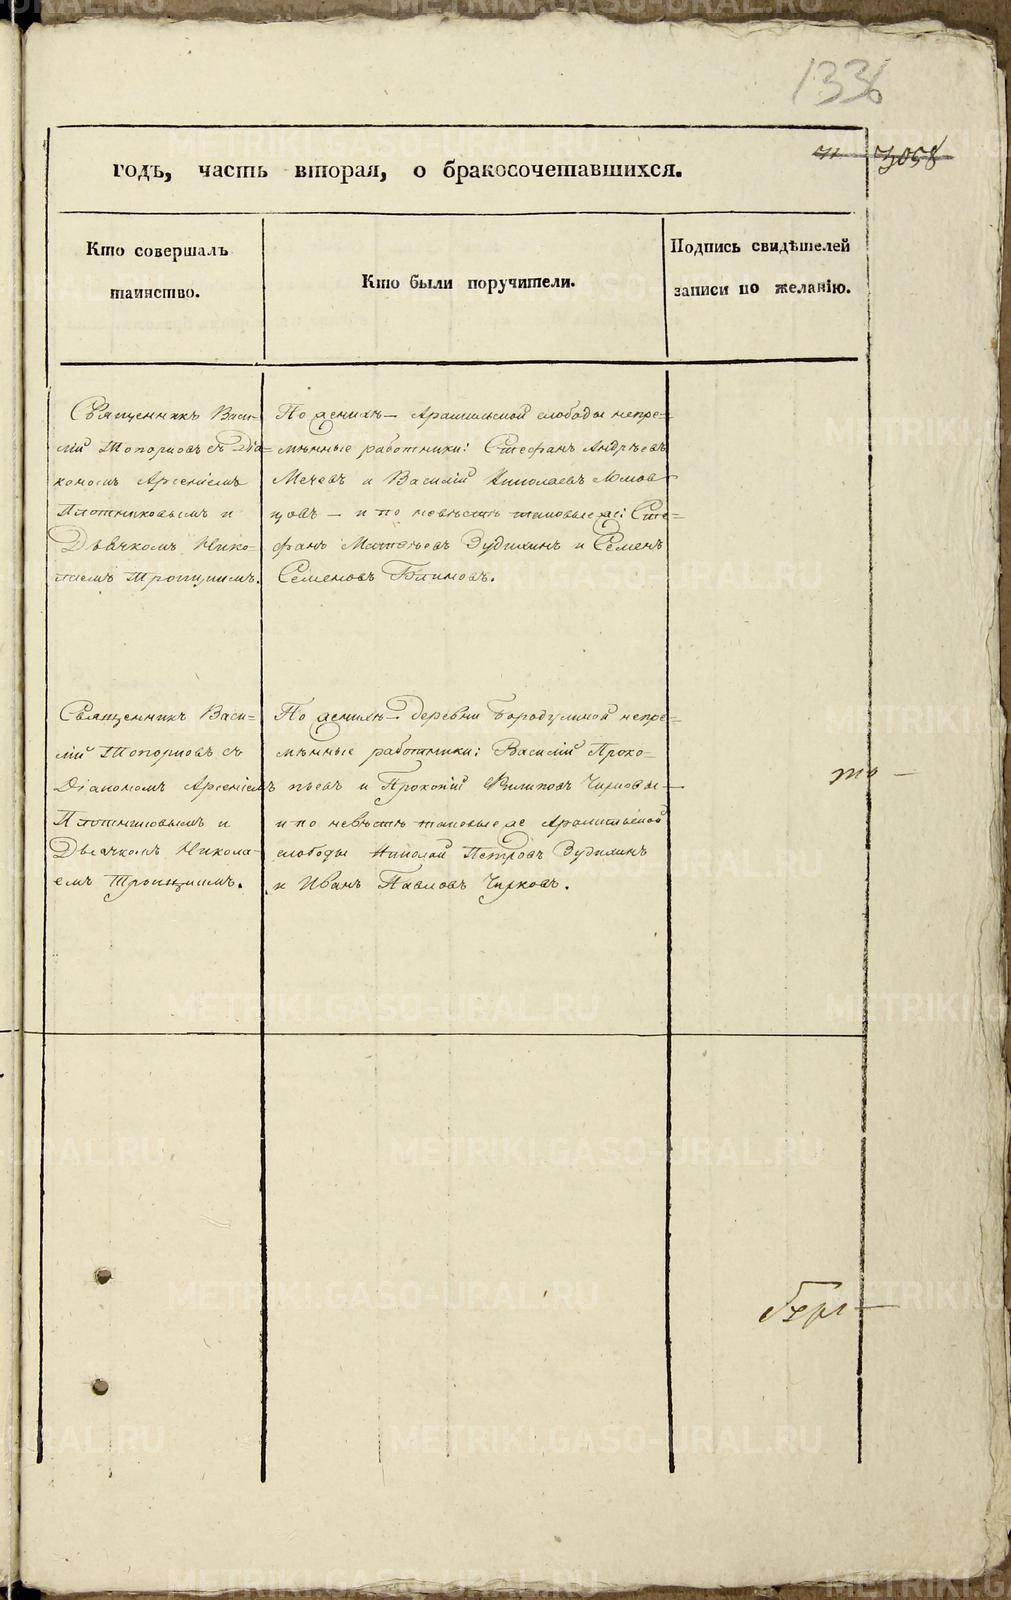 1336
3058
годъ, часть вторая, о бракосочетавшихся.
Кто совершалъ
таинство.
Кто были поручители.
Подпись свидѣтелей
записи по желанію.
Священникъ Васи=
лій Топорковъ съ Діа=
кономъ Арсеніемъ
Плотниковымъ и
Дьячкомъ Нико=
лаемъ Троицкимъ.
По женихѣ — Арамильской слободы непре=
мѣнные работники: Стефанъ Андрѣевъ
и Василій Николаевъ
— и по невѣстѣ таковые же: Сте=
фанъ Матвѣевъ Зудихинъ и Семенъ
Семеновъ Блиновъ.
Священникъ Васи=
лій Топорковъ съ
Діакономъ Арсеніемъ
Плотниковымъ и
Дьячкомъ Никола=
емъ Троицкимъ.
По женихѣ — деревни Бородулиной непре=
мѣнные работники: Василій Проко=
пьевъ и Прокопій Филиповъ Чирковы —
и по невѣстѣ таковые же Арамильской
слободы Николай Петровъ Зудихинъ
и Иванъ Павловъ Чирковъ.
METRIKI.GASO-URAL.RU